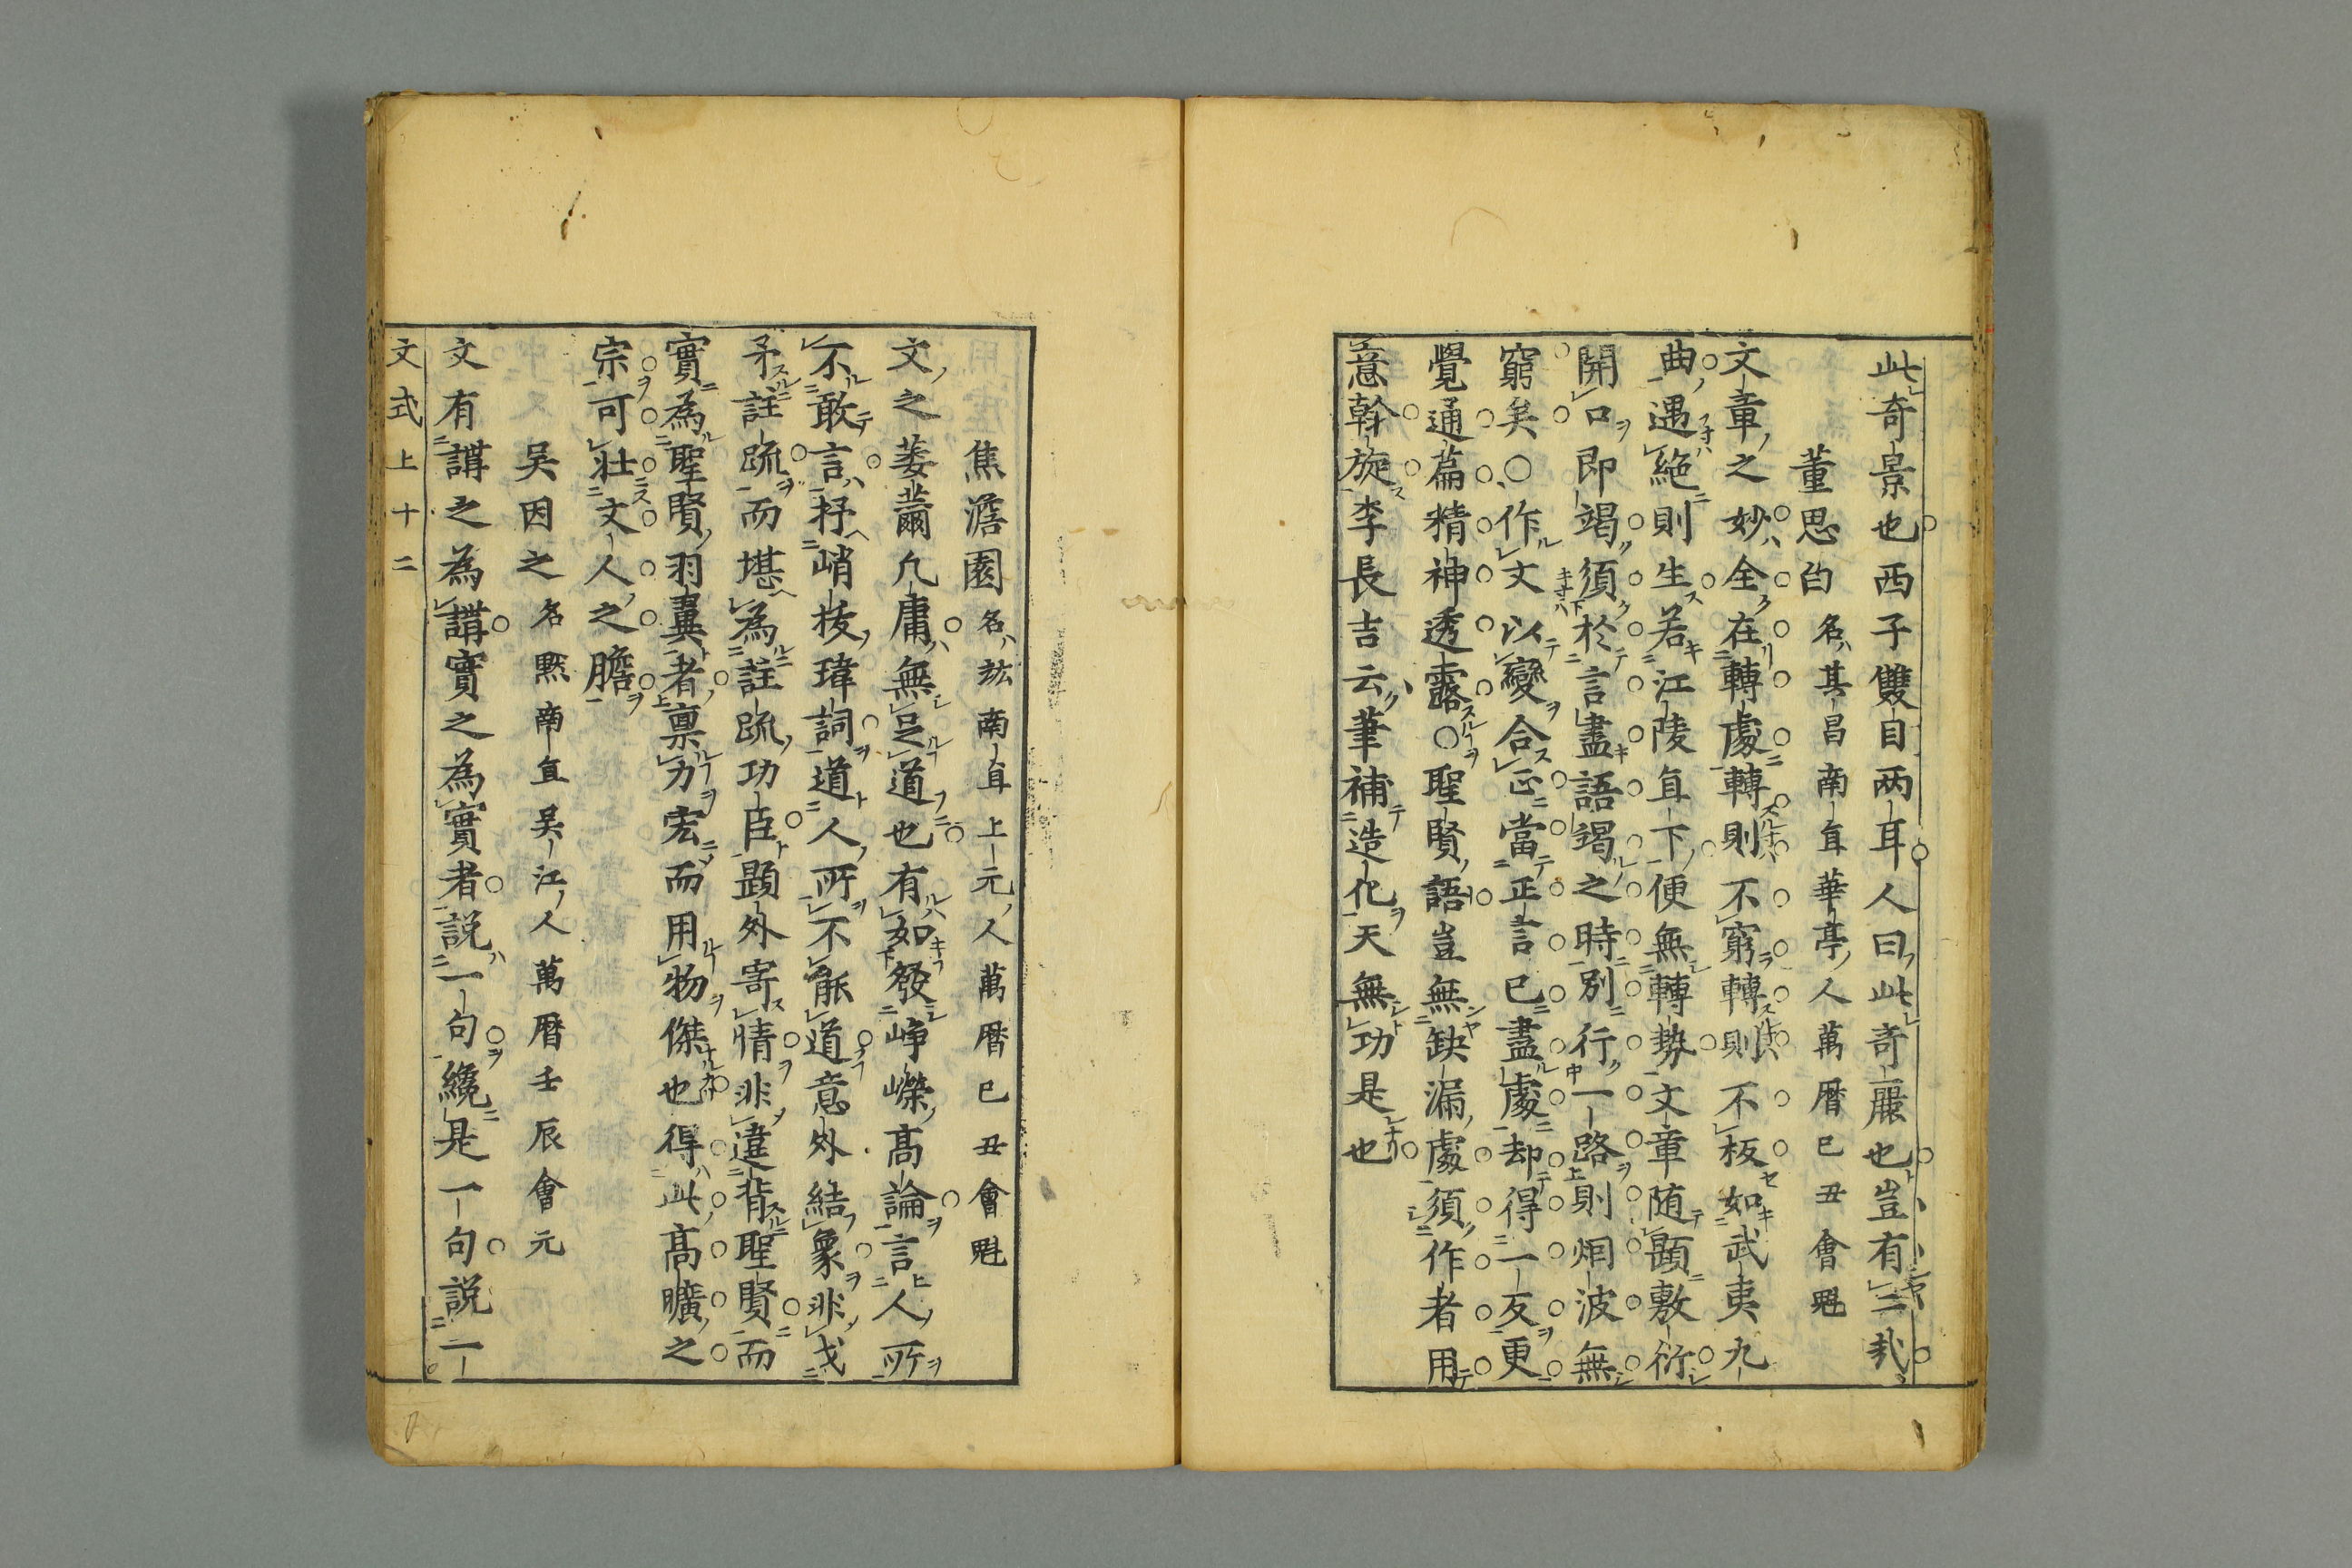 此奇景也西子雙目两耳人曰此奇麗也豈有二哉
董思白名其昌南直華亭人萬曆己丑會魁
文章之妙全在轉處轉則不窮轉則不板如武夷九
曲遇絶則生若江陵直下便無轉勢文章随題敷衍
開口即竭須於言盡語竭之時別行一路則烟波無
窮矣○作文以變合正當正言已盡處却得一反更
覺通篇精神透露○聖賢語豈無缺漏處須作者用
意斡旋李長吉云筆補造化天無功是也
焦澹園名竑南直上元人萬曆己丑會魁
文之萎薾凡庸無足道也有如發崢嶸高論言人所
不敢言抒峭拔瑋詞道人所不能道意外結象非戈
矛註疏而堪為註疏功臣題外寄情非違背聖賢而
實為聖賢羽翼者禀力宏而用物傑也得此高曠之
宗可壯文人之膽
吴因之名黙南直吴江人萬曆壬辰會元
文有講之為講實之為實者説一句纔是一句説二
文式上十二